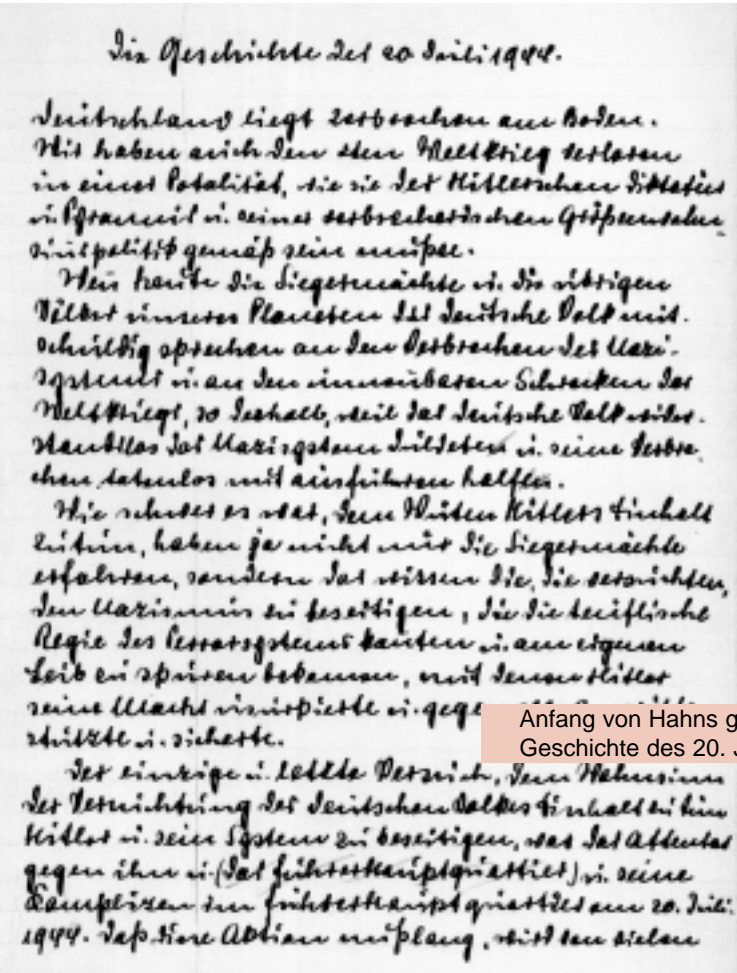 Die Geschichte des 20 Juli 1944.
Deutschland liegt zerbrochen am Boden.
Wir haben auch den 2ten Weltkrieg verloren
in einer Totalität, wie sie der Hitlerschen Diktatur
u. Tyrannis u. seiner verbrecherischen Größenwahn-
sinspolitik gemäß sein mußte.
Wenn heute die Siegermächte u. die übrigen
Völker unseres Planeten das deutsche Volk mit-
schuldig sprechen an den Verbrechen des Nazi-
systems u. an den unnennbaren Schrecken des
Weltkriegs, so deshalb, weil das deutsche Volk wider-
standslos das Nazisystem duldeten u. seine Verbre-
chen tatenlos mit ausführen halfen.
Wie schwer es war, dem Wüten Hitlers Einhalt
zu tun, haben ja nicht nur die Siegermächte
erfahren, sondern das wissen die, die versuchten,
den Nazismus zu beseitigen, die die teuflische
Regie des Terrorsystems kannten u. am eigenen
Leib zu spüren bekamen, mit denen Hitler
seine Macht usurpierte u. gege
stützte u. sicherte.
Anfang von Hahns g
Geschichte des 20. J
Der einzige u. letzte Versuch, dem Wahnsinn
der Vernichtung des deutschen Volkes Einhalt zu tun
Hitler u. sein System zu beseitigen, war das Attentat
gegen ihn u. (das Führerhauptquartier) u. seine
Komplizen im Führerhauptquartier am 20. Juli.
1944. Daß diese Aktion mußlang, wird von vielen